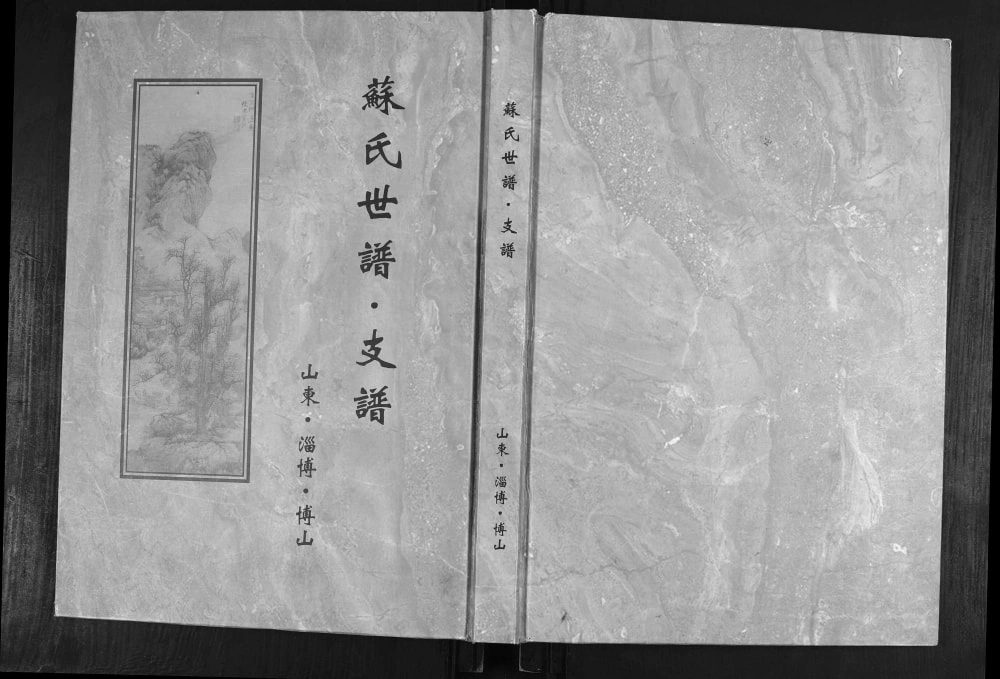 蘇氏世譜·支譜
山東·淄博·博山
蘇氏世譜·支譜
山東·淄博·博山